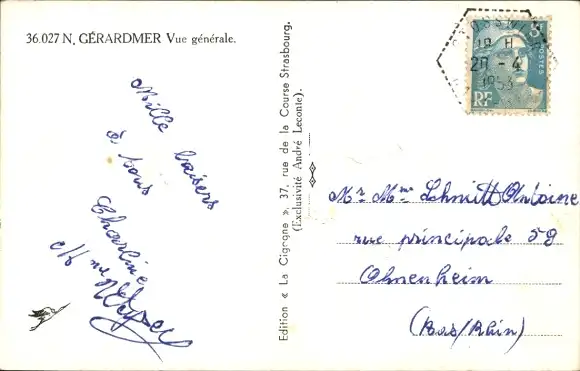 36.027 N. GÉRARDMER Vue générale.
Mille baisers
à tous
Charline
Mme
Edition « La Cigogne », 37, rue de la Course Strasbourg.
(Exclusivité André Leconte).
19 H
20 - 4
1953
5F
POSTES
RF
Mr Mme Schmitt Antoine
rue principale 59
Ohnenheim
(Bas/Rhin)